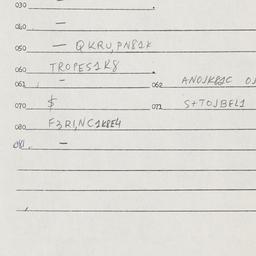 030
040 —
050 — QKRU,PN81K
060 TROPES1K8
061 — 062 ANOJKB1C OJ
070 $ 071 S+TOJBEL1
080 F3RI,NC1K8E4
081 —